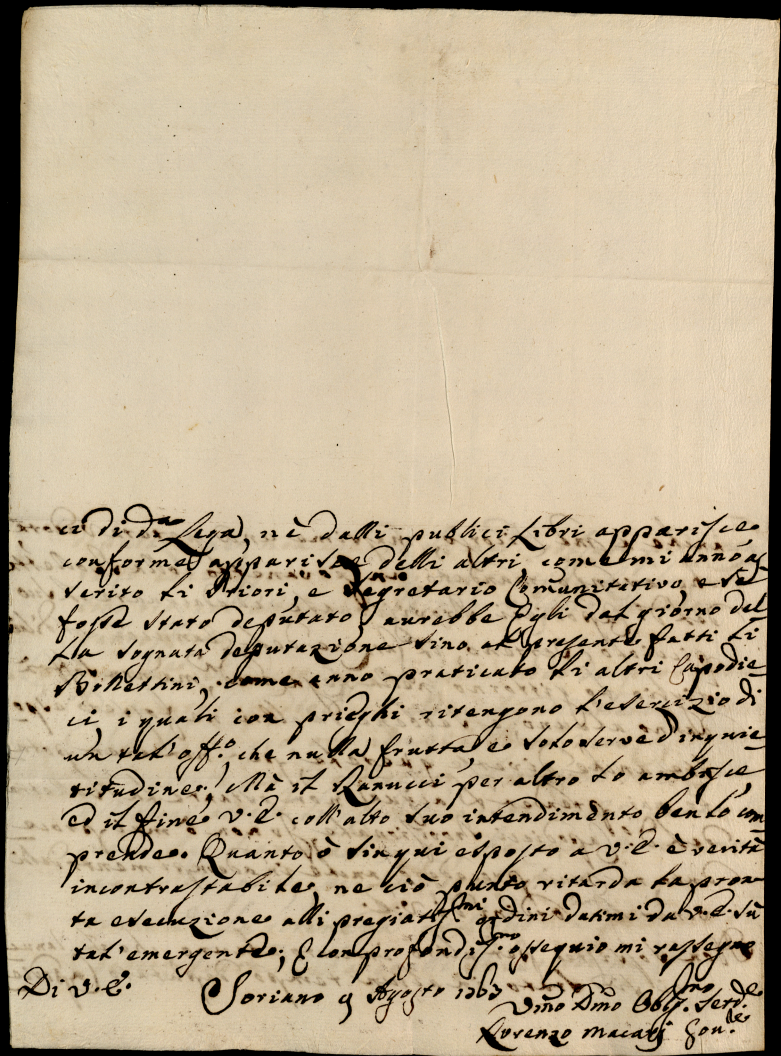 ci di d.ª Lega, nè dalli publici Libri apparisce
conforme apparisce delli altri, come mi anno as
serito li Priori, e Segretario Comunitativo, e se
fosse stato deputato, aurebbe Egli dal giorno del
la sognata deputazione sino al presente fatti li
Bollettini, come anno praticato li altri Capodie
ci i quali con prieghi ritengono l'esercizio di
un tal' off.º che nulla frutta, e solo serve d'inquie
titudine. Mà il Ranucci per altro lo ambisce,
ed il fine V. E. coll'alto suo intendimento ben lo com
prende. Quanto ò sin qui esposto a V. E. è verità
incontrastabile, ne ciò punto ritarda la pron
ta esecuzione alli pregiatis.mi ordini datimi da V. E. sù
tal' emergente; E con profondis.mo ossequio mi rassegno
Di V. E. Soriano 9 Agosto 1763
Vmo Dmo Oblg.mo Serd.e
Lorenzo Macarij Gou.e